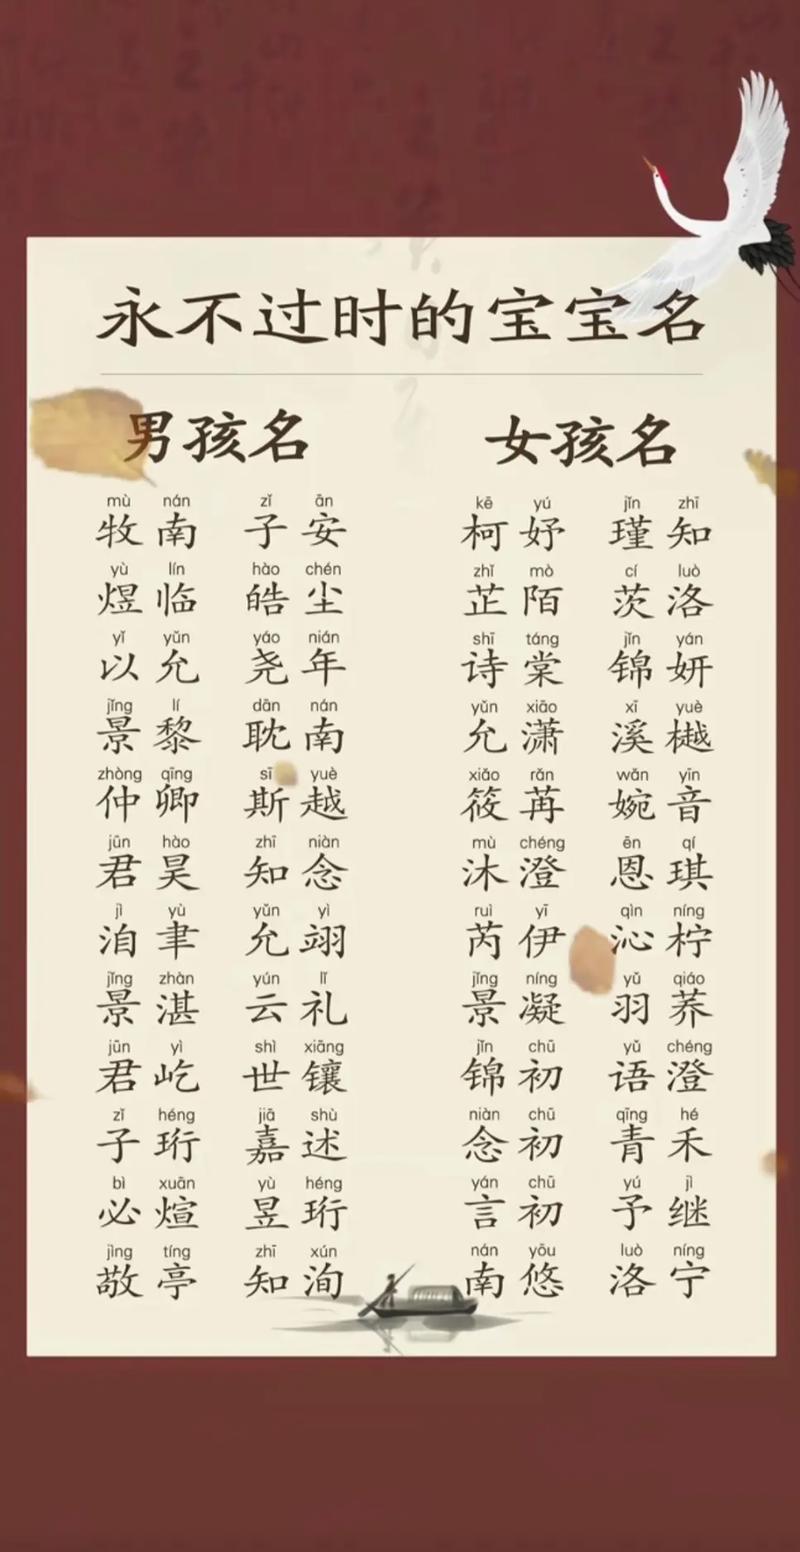 永不过时的宝宝名
男孩名 女孩名
mù nán zǐ ān kē yú jǐn zhī
牧南 子安 柯妤 瑾知
yù lín hào chén zhǐ mò cí luò
煜临 皓尘 芷陌 茨洛
yǐ yǔn yáo nián shī táng jǐn yán
以允 尧年 诗棠 锦妍
jǐng lí dān nán yǔn xiāo xī yuè
景黎 耽南 允潇 溪樾
zhòng qīng sī yuè xiǎo rǎn wǎn yīn
仲卿 斯越 筱苒 婉音
jūn hào zhī niàn mù chéng ēn qí
君昊 知念 沐澄 恩琪
jì yù yǔn yì ruì yī qìn níng
洎聿 允翊 芮伊 沁柠
jǐng zhàn yún lǐ jǐng níng yǔ qiáo
景湛 云礼 景凝 羽荞
jūn yì shì xiāng jǐn chū yǔ chéng
君屹 世镶 锦初 语澄
zǐ héng jiā shù niàn chū qīng hé
子珩 嘉述 念初 青禾
bì xuān yù héng yán chū yú jì
必煊 昱珩 言初 予继
jìng tíng zhī xún nán yōu luò níng
敬亭 知洵 南悠 洛宁